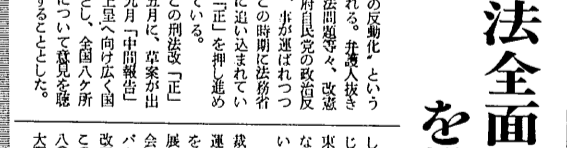 法全面
を
の反動化〟という
れる。弁護人抜き
法問題等々、改憲
府自民党の政治反
、事が運ばれつつ
この時期に法務省
に追い込まれてい
「正」を押し進め
ている。
この刑法改「正」
五月に、草案が出
九月「中間報告」
上呈へ向け広く国
とし、全国八ケ所
について意見を聴
することとした。
し
じ
東
な
い
裁
運
を
展
会
バ
改
こ
八〇
大